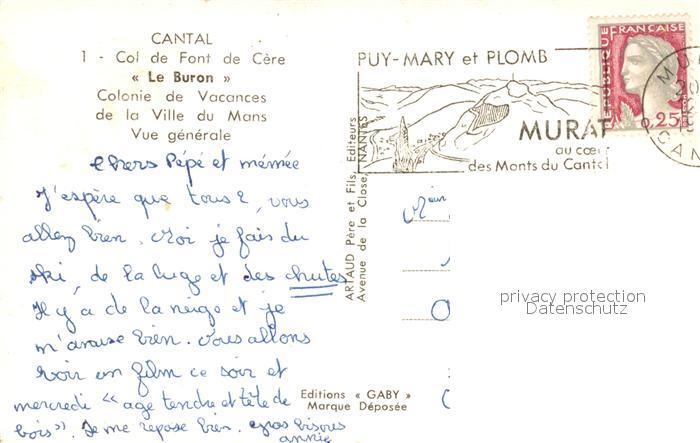 CANTAL
1 - Col de Font de Cère
« Le Buron »
Colonie de Vacances
de la Ville du Mans
Vue générale
chers Pépé et mémée
J'espère que tous 2, vous
allez bien. Moi je fais du
ski, de la luge et des chutes
Il y a de la neige et je
m'amuse bien. Nous allons
voir un film ce soir et
mercredi "age tendre et tête de
bois". Je me repose bien. gros bisous
annie
ARTAUD Père et Fils, Editeurs
Avenue de la Close, NANTES
Editions « GABY »
Marque Déposée
PUY-MARY et PLOMB
MURAT
au cœur
des Monts du Cantal
REPUBLIQUE
FRANÇAISE
0,25
MU
20
CAN
privacy protection
Datenschutz